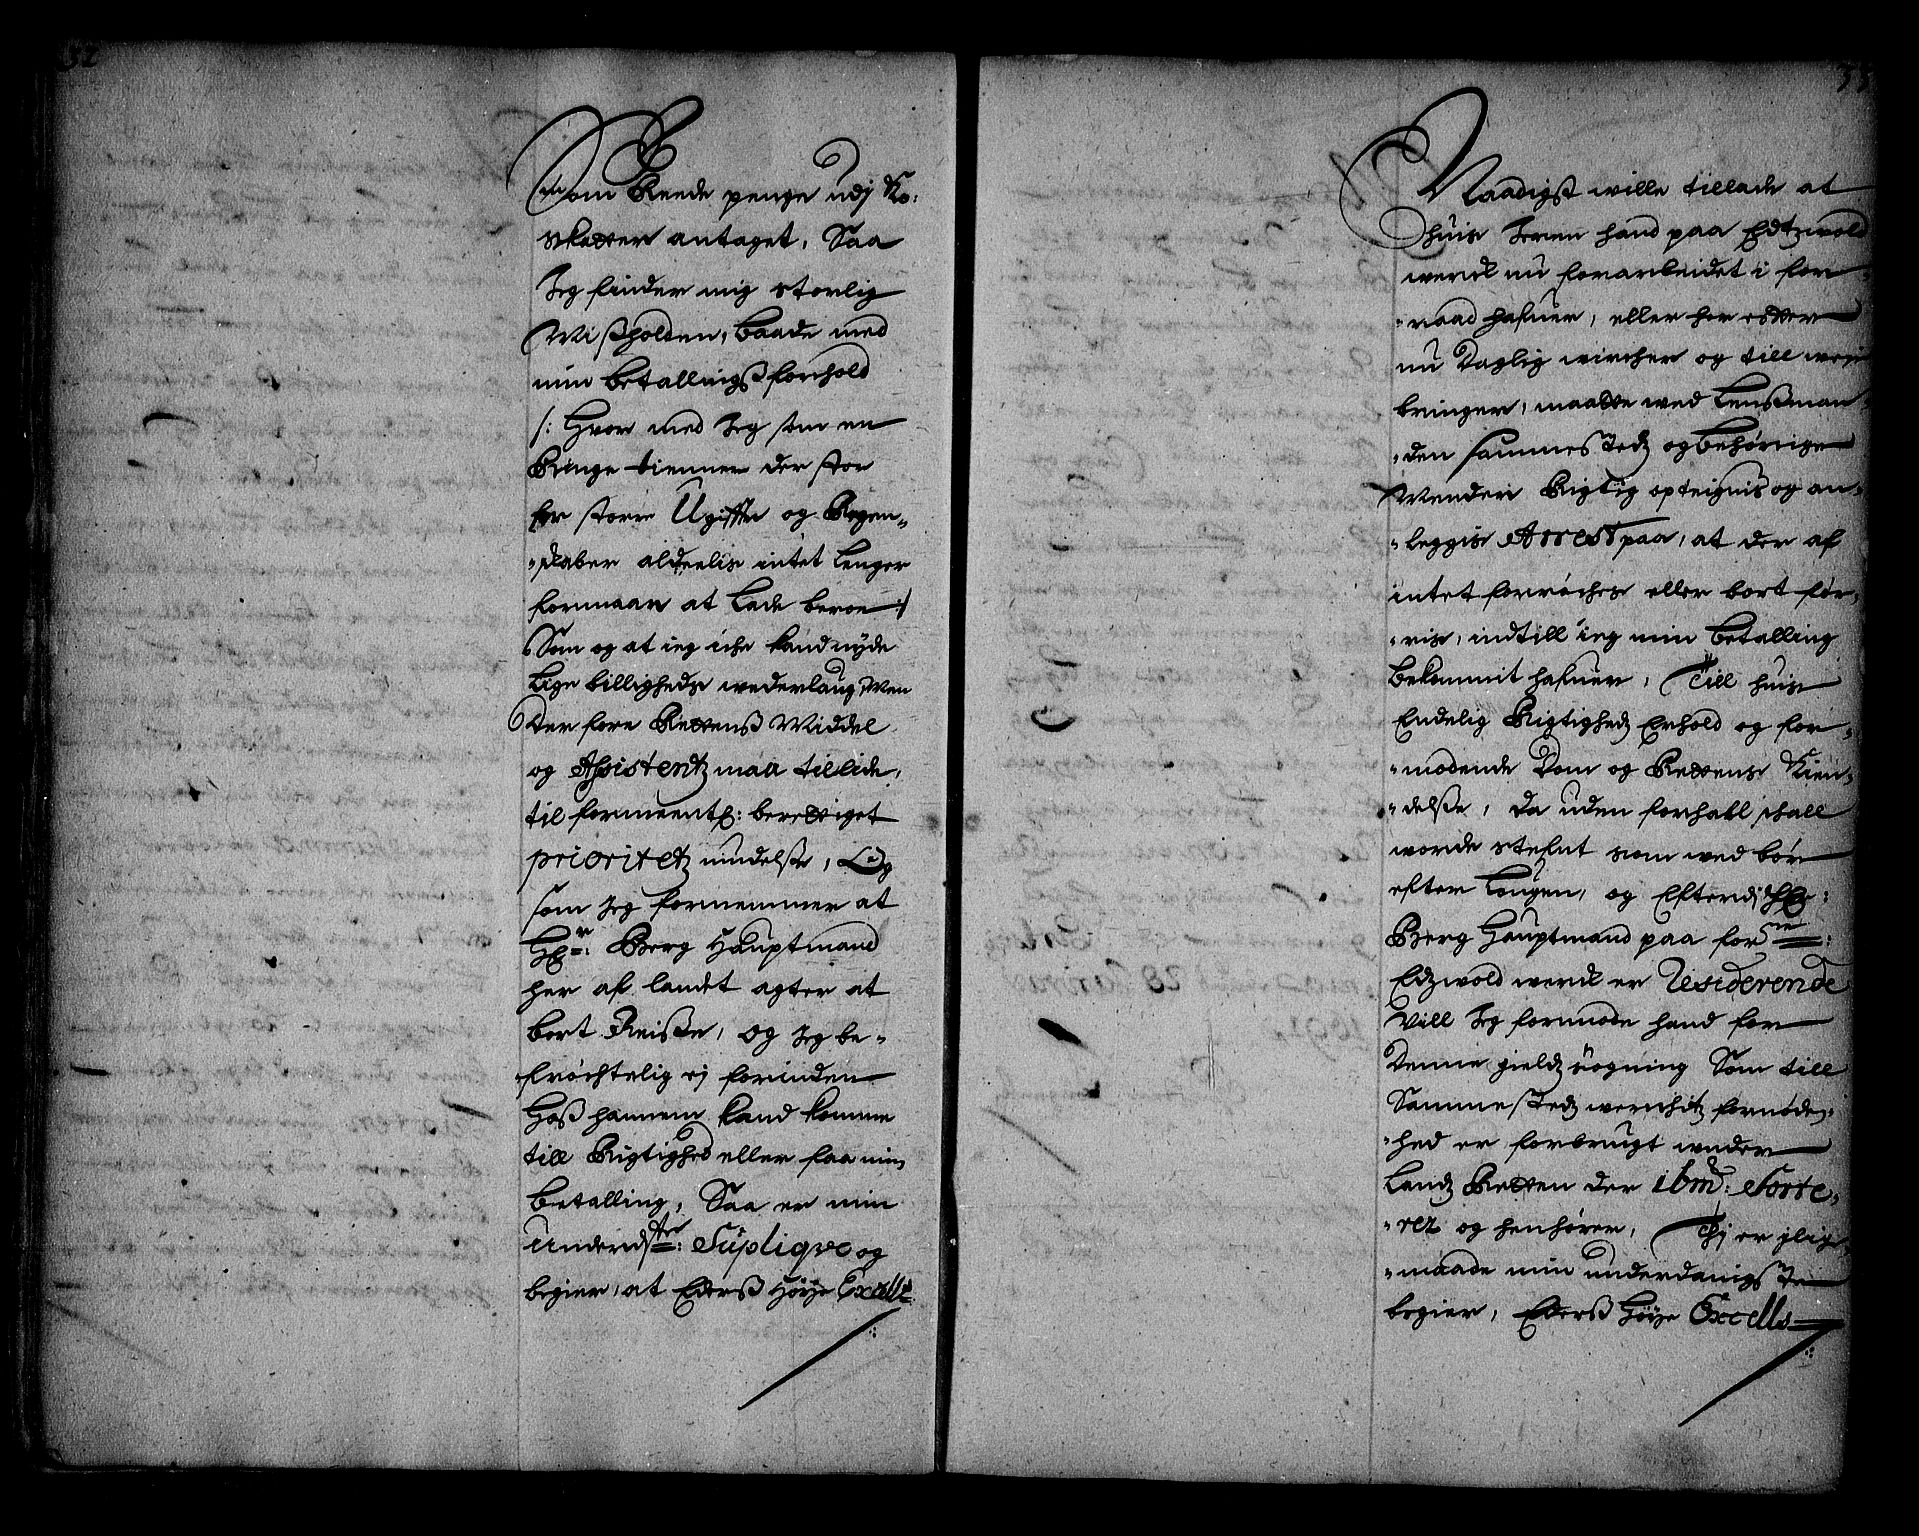 32
Som Reede penge udj Ko-
skatter antaget, Saa
Jeg finder mig storlig
Wißholden, baade med
min betallingß forhold
/: Hvor med Jeg som en
Ringe tienner der stor
for større Ugiffter og Regen-
skaber aldeelis intet lenger
formaar at lade beroe :/
Som og at ieg iche kand nyde
lige billigheds wederlaug, Men
Der fore Rettenß Middel
og Assistentz maa tillide,
til formeentl: berettiget
prioritetz nndelße, Og
som Jeg fornemmer at
Hr: Berg Hauptmand
her af landet agter at
bort Reiße, og Jeg be-
frøchtelig ej forinden
Hoß hannem kand komme
till Rigtighed eller faa min
betalling, Saa er min
Underdste: Supliqve og
begier, at Ederß Høye Excells:
33
Naadigst wille tillade at
huis Jeren hand paa Edtzwold
werck nu forarbeidet i for-
raad hafuer, eller her effter
nu Daglig wircher og till weye
bringer, maatte wed Lenßman-
den sammestedtz og behørige
Wenderi Rigtig opteignis og an-
legges Arrest paa, at der af
intet forrøches eller bort før-
ris, indtill ieg min betalling
bekommit hafuer, Till huis
Endelig Rigtighedtz Erhold og for-
modende Dom og Rettens Kien-
delße, Da uden forhall schall
worde stefnt som wed bør
efter Lougen, og Efterdj Hr:
Berg Hauptmand paa forne:
Edtzwold werck er Residerende
Vill Jeg formode hand for
Denne gieldtz søgning Som till
Sammestedtz werchitz fornøden-
hed er forbrugt under
Landtz Retten der ibm: Sorte-
rer og henhører, Thj er jlige-
maade min underdanigste
begier, Ederß Høye Excells